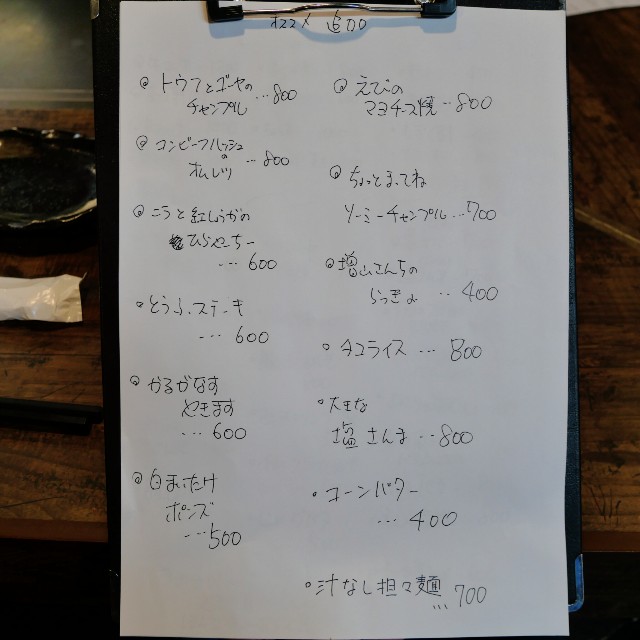 オススメ 追加
トウフとゴーヤの
チャンプル …800
コンビーフハッシュ
の
オムレツ …800
ニラと紅しょうがの
ひらやーちー
…600
とうふステーキ
…600
かるがなす
やきます
…600
白まいたけ
ポンズ
…500
えびの
マヨチーズ焼 …800
ちょっとまってね
ソーミーチャンプル …700
増山さんちの
らっきょ …400
タコライス …800
大王な
塩さんま …800
コーンバター
…400
汁なし担々麺
…700